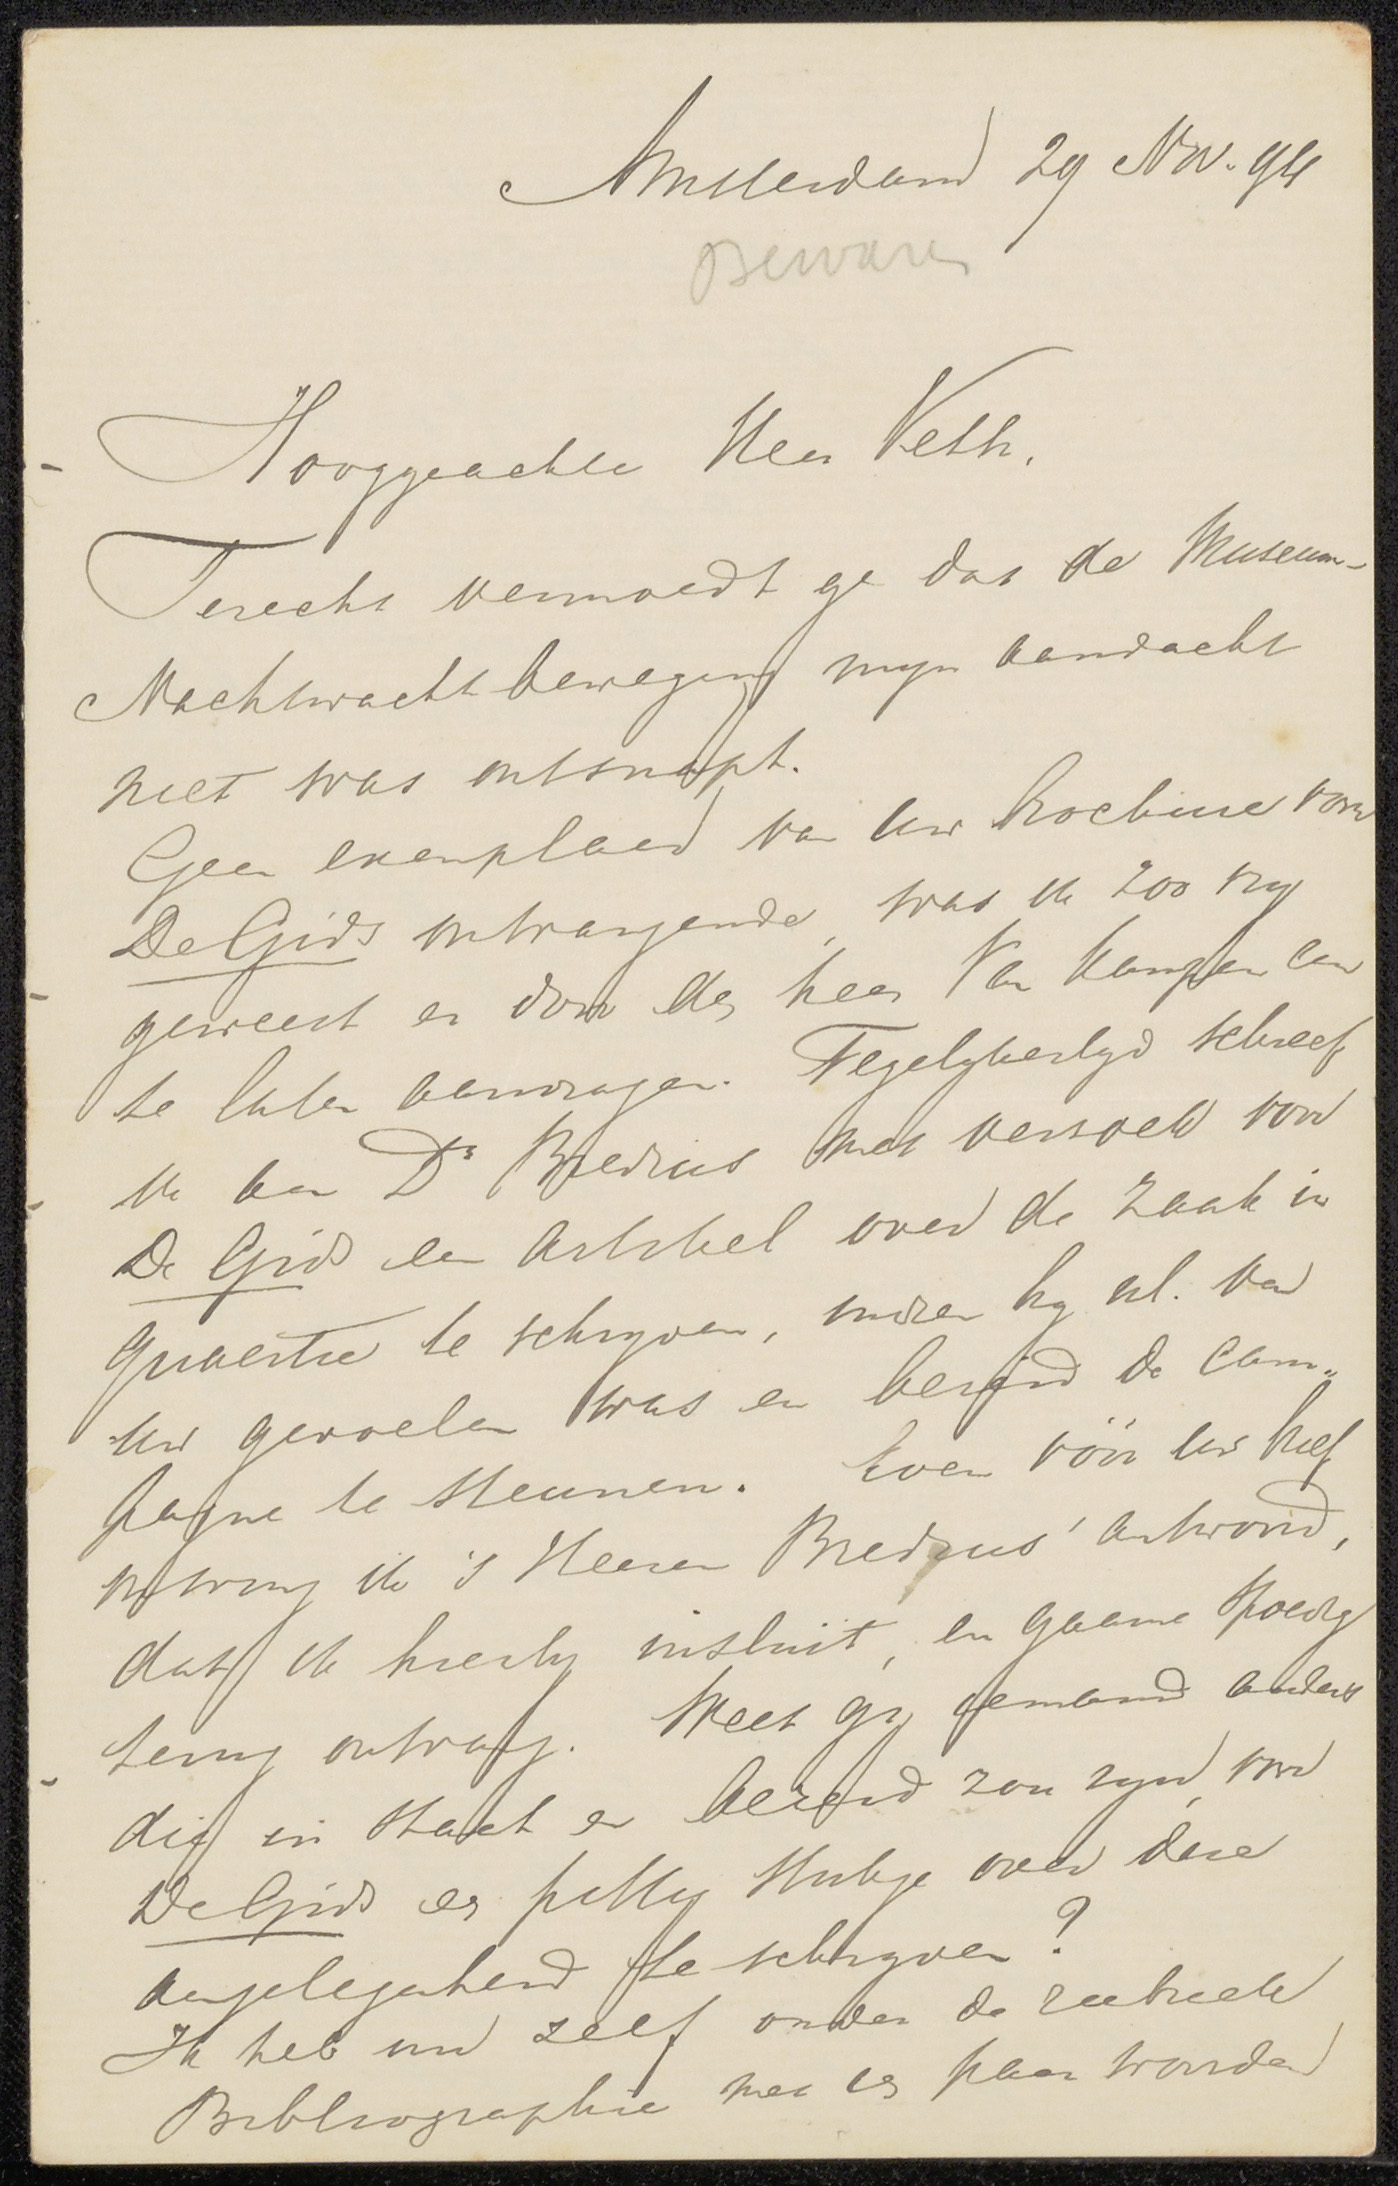 Amsterdam 29 Nov. 94
Bewaren
Hooggeachte Heer Veth.
Terecht vermoedt ge dat de Museum-
Nachtwachtbeweging mijn aandacht
niet was ontsnapt.
Geen exemplaar van uw brochure voor
De Gids ontvangende, was ik zoo vrij
geweest er door den heer Van Kampen een
te laten aanvragen. Tegelijkertijd schreef
ik aan Dr Bredius met verzoek voor
De Gids een artikel over de zaak in
quaestie te schrijven, indien hij nl. van
uw gevoelen was en bereid de cam-
pagne te steunen. Even vóór uw brief
ontving ik 's Heeren Bredius' antwoord,
dat ik hierbij insluit, en gaarne spoedig
terug ontvang. Weet gij iemand anders
die in staat en bereid zou zijn, voor
De Gids een pittig stukje over deze
aangelegenheid te schrijven?
Ik heb nu zelf onder de rubriek
Bibliographie met een paar woorden